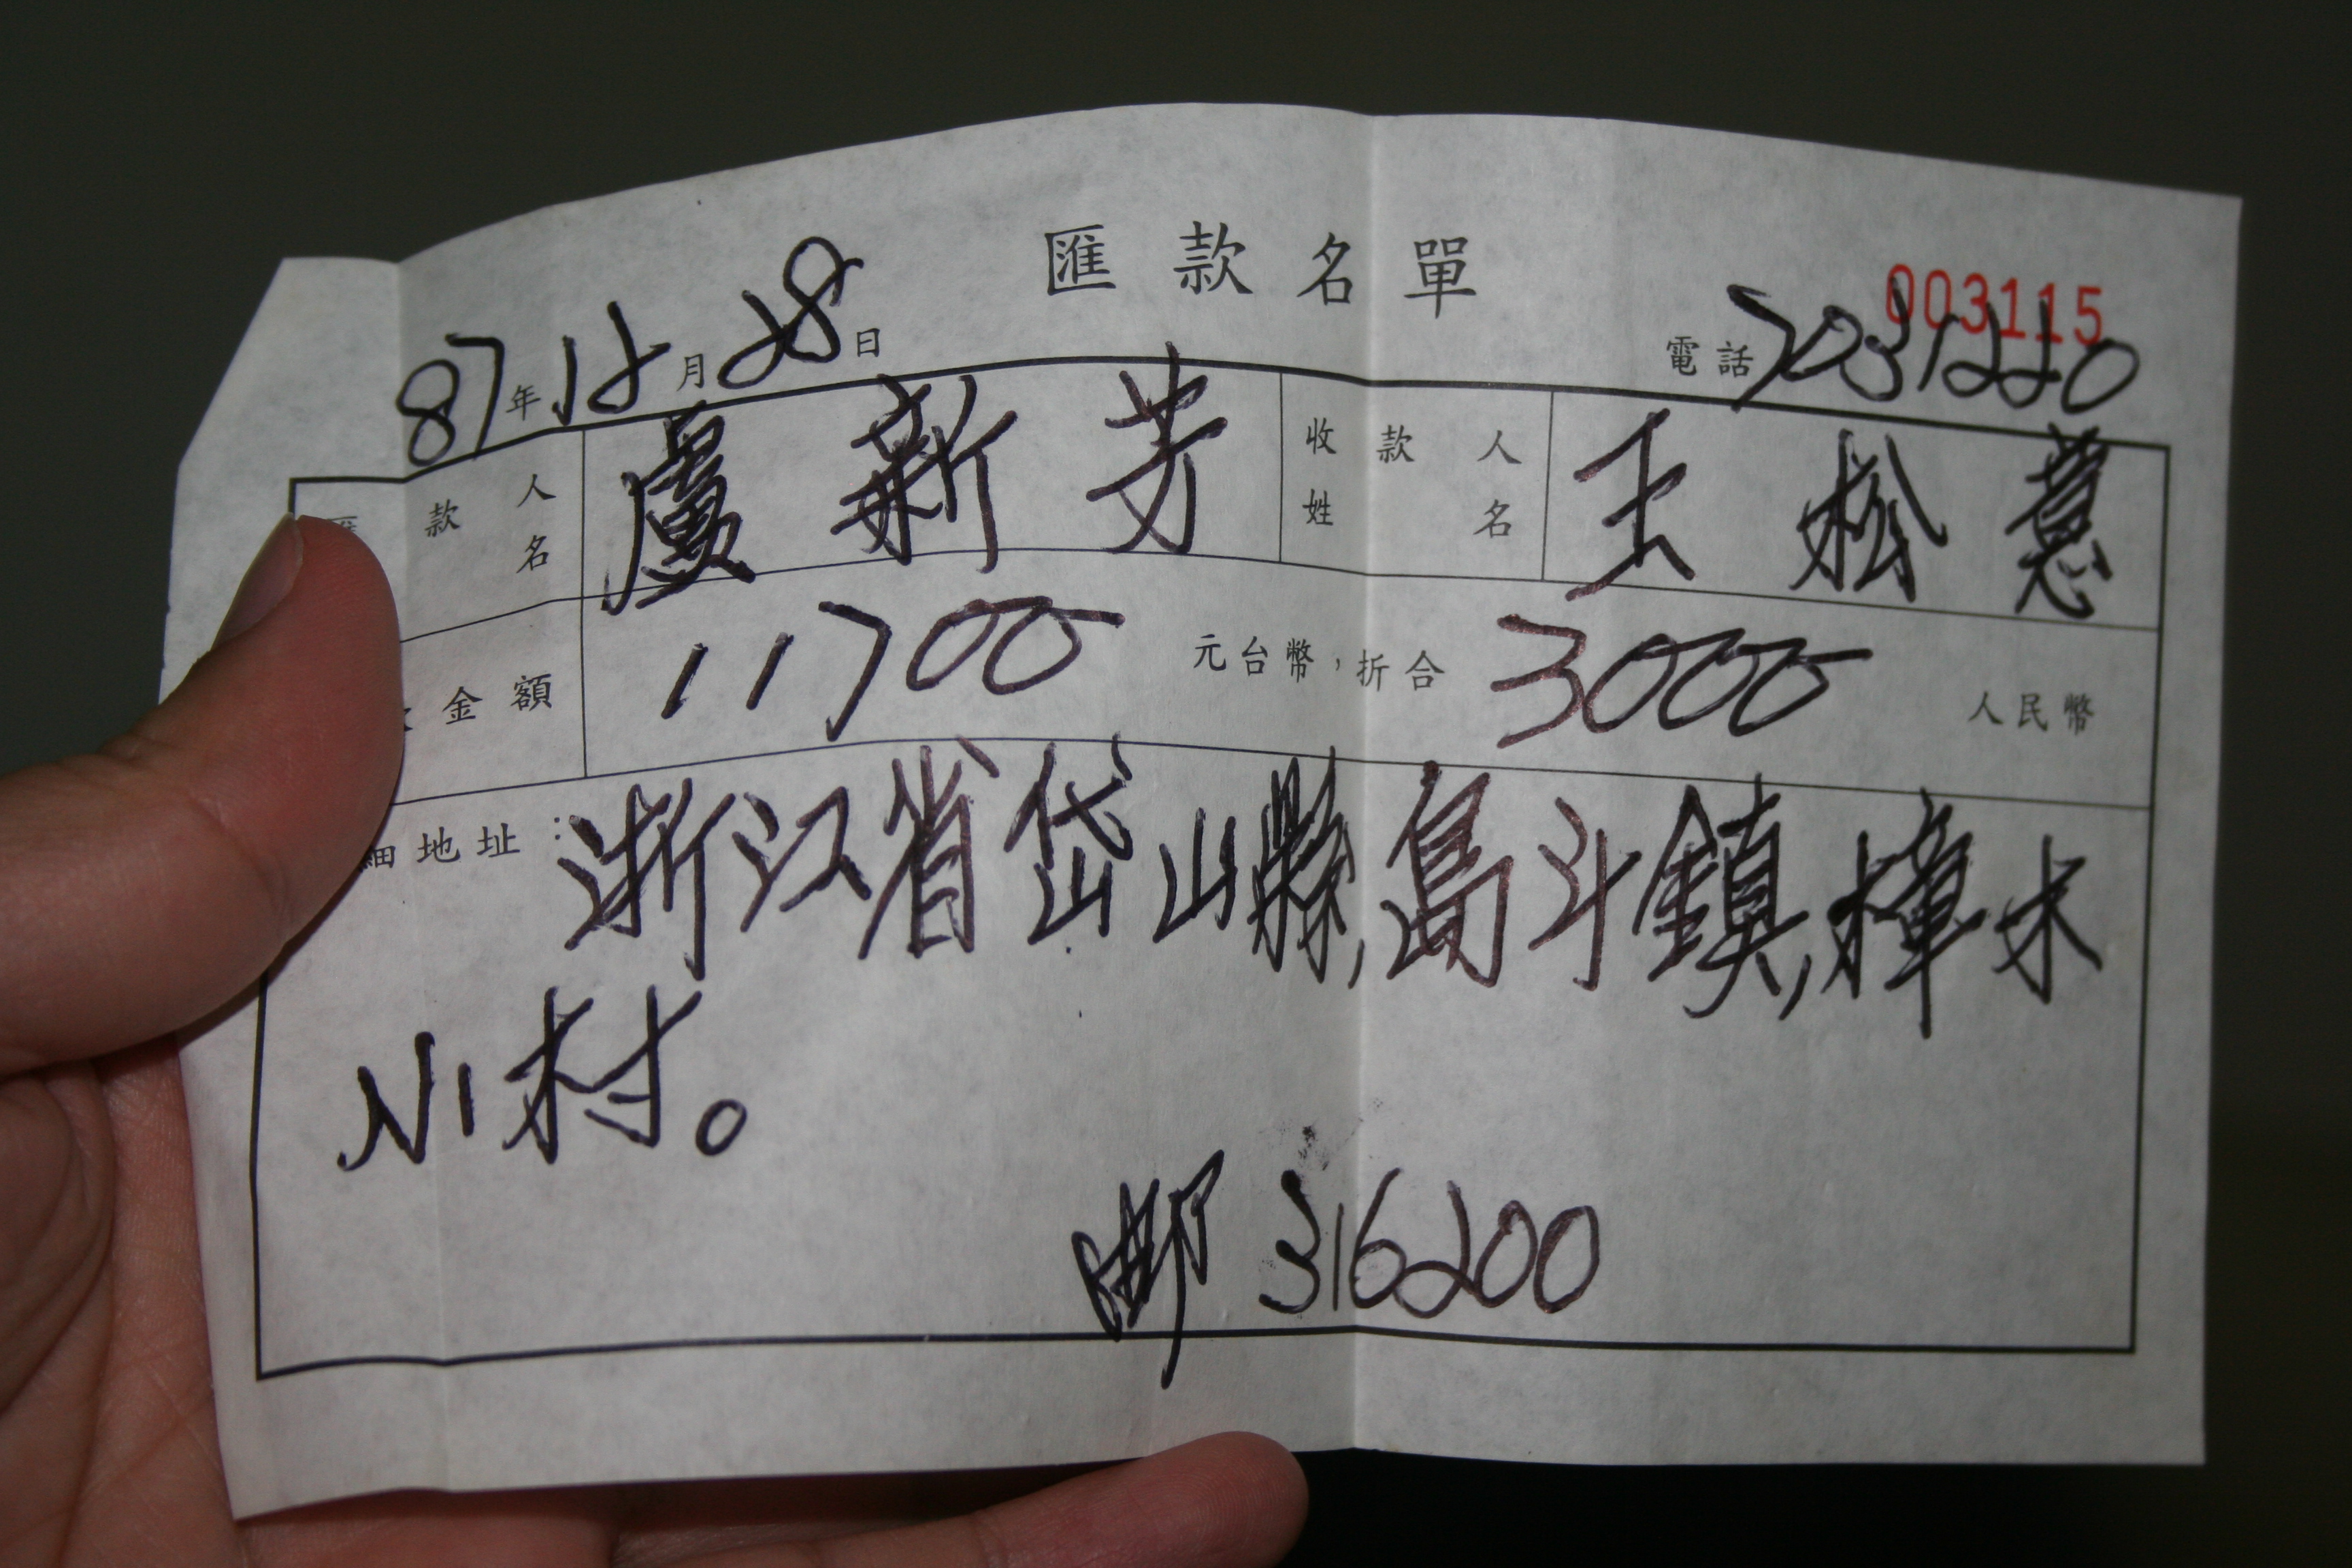 匯款名單
003115
87年12月28日
電話7031220
款人名 盧新芳 收款人姓名 王松意
金額 11700 元台幣，折合 3000 人民幣
細地址：浙江省岱山縣,島斗鎮,樟木
小村。
邮 316200